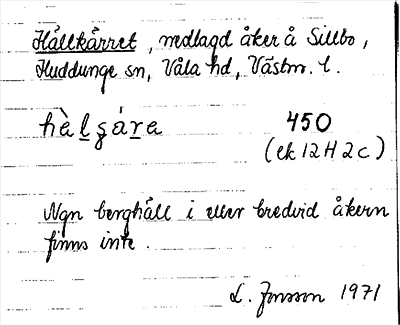 Hällkärret, nedlagd åker å Sillbo,
Huddunge sn, Våla hd, Västm. l.
hèlʂára 450
(ek 12H2c)
Ngn berghäll i eller bredvid åkern
finns inte.
L. Jonsson 1971